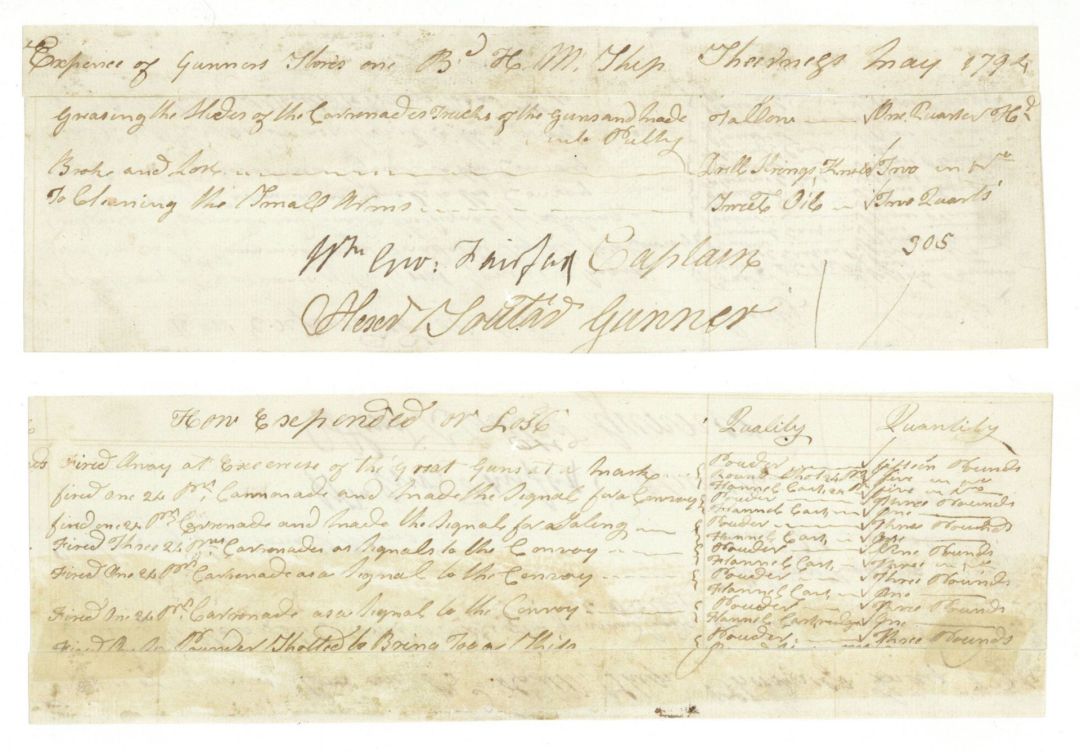 Expence of Gunners Stores one Bd H. M. Ship Sheerness May 1794
Greasing the Slides of the Carronades Trucks of the Guns and made Tallow One Quarter Hd
into Putty
Broke and Lost Drill Strings Two in No
To Cleaning the Small Arms Sweet Oil Two Quarts
305
Wm Geo: Fairfax Captain
Alexd Gunner
How Expended or Lost Quality Quantity
Fired Away at Exercise of the Great Guns at a Mark Powder fifteen Pounds
Round Shot 24 Pr five in No
Flannel Cart. 24 Pr five in No
fired one 24 Pr. Cannonade and made the Signal for a Convoy Powder Three Pounds
Flannel Cart. One
fired one 24 Pr. Carronade and made the Signal for Saling Powder Three Pounds
Flannel Cart. One
Fired Three 24 Prs Carronades as Signals to the Convoy Powder Nine Pounds
Flannel Cart. Three in No
Fired One 24 Pr. Carronade as a Signal to the Convoy Powder Three Pounds
Flannel Cart. One
Fired One 24 Pr. Carronade as a Signal to the Convoy Powder Three Pounds
Flannel Cartridge One
Fired Pounder Shotted to Bring Too a Ship Powder Three Pounds